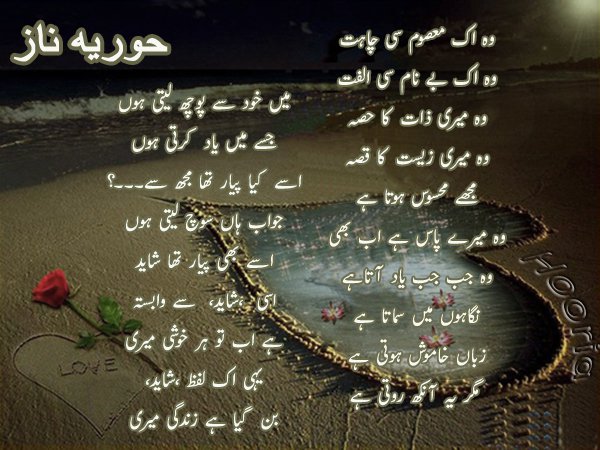 حوریہ ناز
وہ اک معصوم سی چاہت
وہ اک بے نام سی الفت
وہ میری ذات کا حصہ
وہ میری زیست کا قصہ
مجھے محسوس ہوتا ہے
وہ میرے پاس ہے اب بھی
وہ جب جب یاد آتا ہے
نگاہوں میں سماتا ہے
زبان خاموش ہوتی ہے
مگر یہ آنکھ روتی ہے
میں خود سے پوچھ لیتی ہوں
جسے میں یاد کرتی ہوں
اسے کیا پیار تھا مجھ سے۔۔۔؟
جواب ہاں سوچ لیتی ہوں
اسے بھی پیار تھا شاید
اسی ،شاید، سے وابستہ
ہے اب تو ہر خوشی میری
یہی اک لفظ ،شاید،
بن گیا ہے زندگی میری
LOVE
Hooria